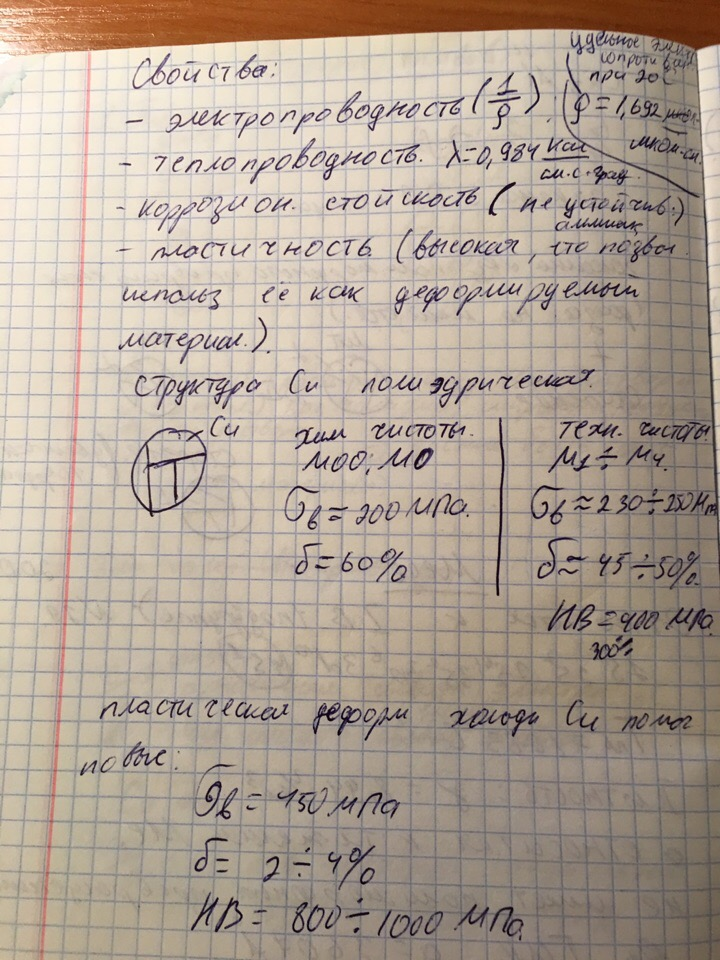 Свойства:
удельное элект
сопротивл.
при 20°C
- электропроводность (1/ρ) : ρ = 1,692
мком·см.
- теплопроводность. λ=0,984 кал/см.с.град.
- коррозион. стойкость (не устойчив:)
аммиак
- пластичность. (высокая, что позвол.
использ ее как деформируемый
материал.).
Структура Cu полиэдрическая.
Cu
хим чистоты.
М00; М0
σв = 200 МПа.
δ = 60%
техн. чистоты
М1 ÷ М4.
σв ≈ 230÷250
δ ≈ 45 ÷ 50%.
HB = 400 МПа.
пластическая деформ холодн Cu помог
повыс:
σв = 450 МПа
δ = 2 ÷ 4%
HB = 800 ÷ 1000 МПа.